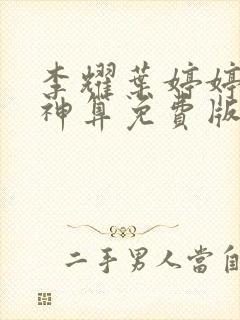 李耀葉婷婷
神算免費版
二手男人當自